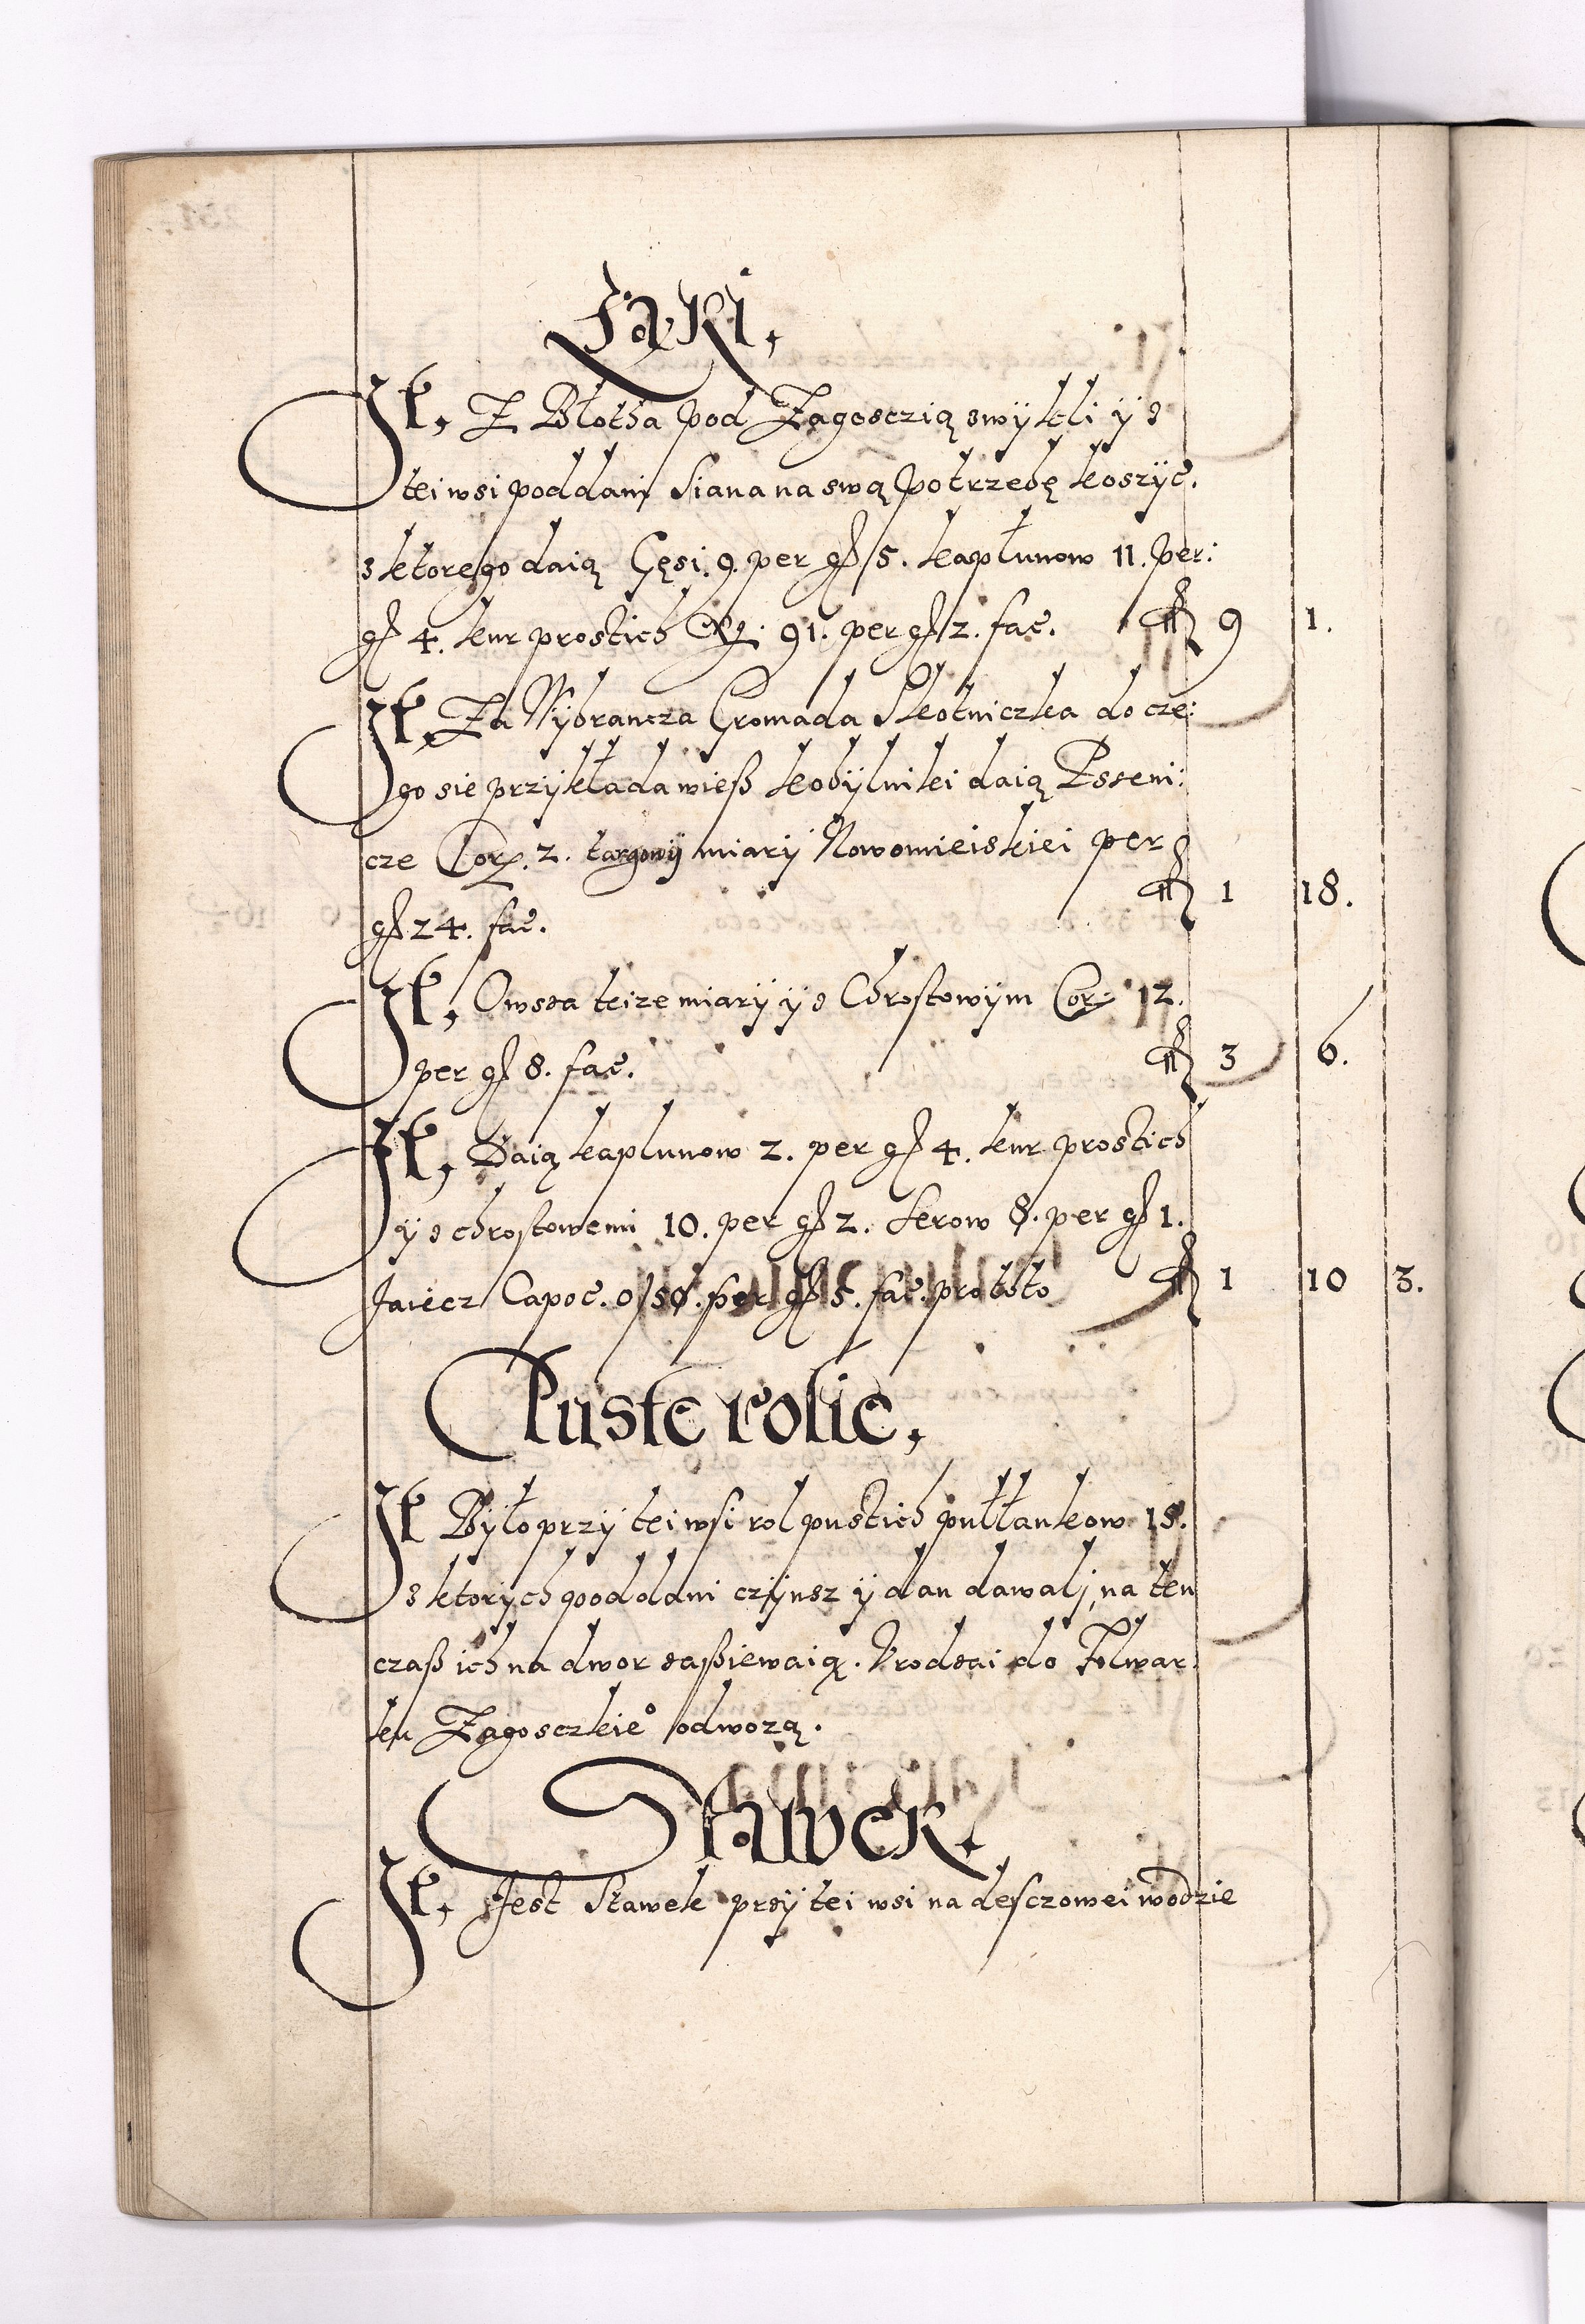 Łąki,
It, Z Błotha pod Zagosczią zwÿkli ÿ z
tei wsi poddani Siana na swą potrzebę koszÿc.
z ktorego daią Gęsi. 9. per gß 5. kapłunow 11. per:
gß 4. kur prostich 91. per gß 2. fac. fl 9 1.
It, Za Wybrancza Gromada Skotniczka do cze:
go sie przÿkłada wieß kobÿlniki daią Psseni:
cze Cor. 2. targowÿ miarÿ Nowomieiskiei per
gß 24. fac. fl 1 18.
It, Owsza teize miarÿ ÿ z Chrostowÿm Cor 12.
per gß 8. fac. fl 3 6.
It, Daią kaplunow 2. per gß 4. kur prostich
ÿ z chrostowemi 10. per gß 2. Serow 8. per gß 1.
Jaiecz Capoc. 0/50. per gß 5. fac. pro toto fl 1 10 3.
Puste rolie,
It Było przÿ tei wsi rol pustich pułłankow 15.
z ktorÿch poddani czÿnsz ÿ dan dawali, na ten
czaß ich na dwor zaßiewaią. Vrodzai do Folwar:
ku Zagosczkie° odwozą.
Stawek.
It, Jest Stawek przÿ tei wsi na desczowei wodzie